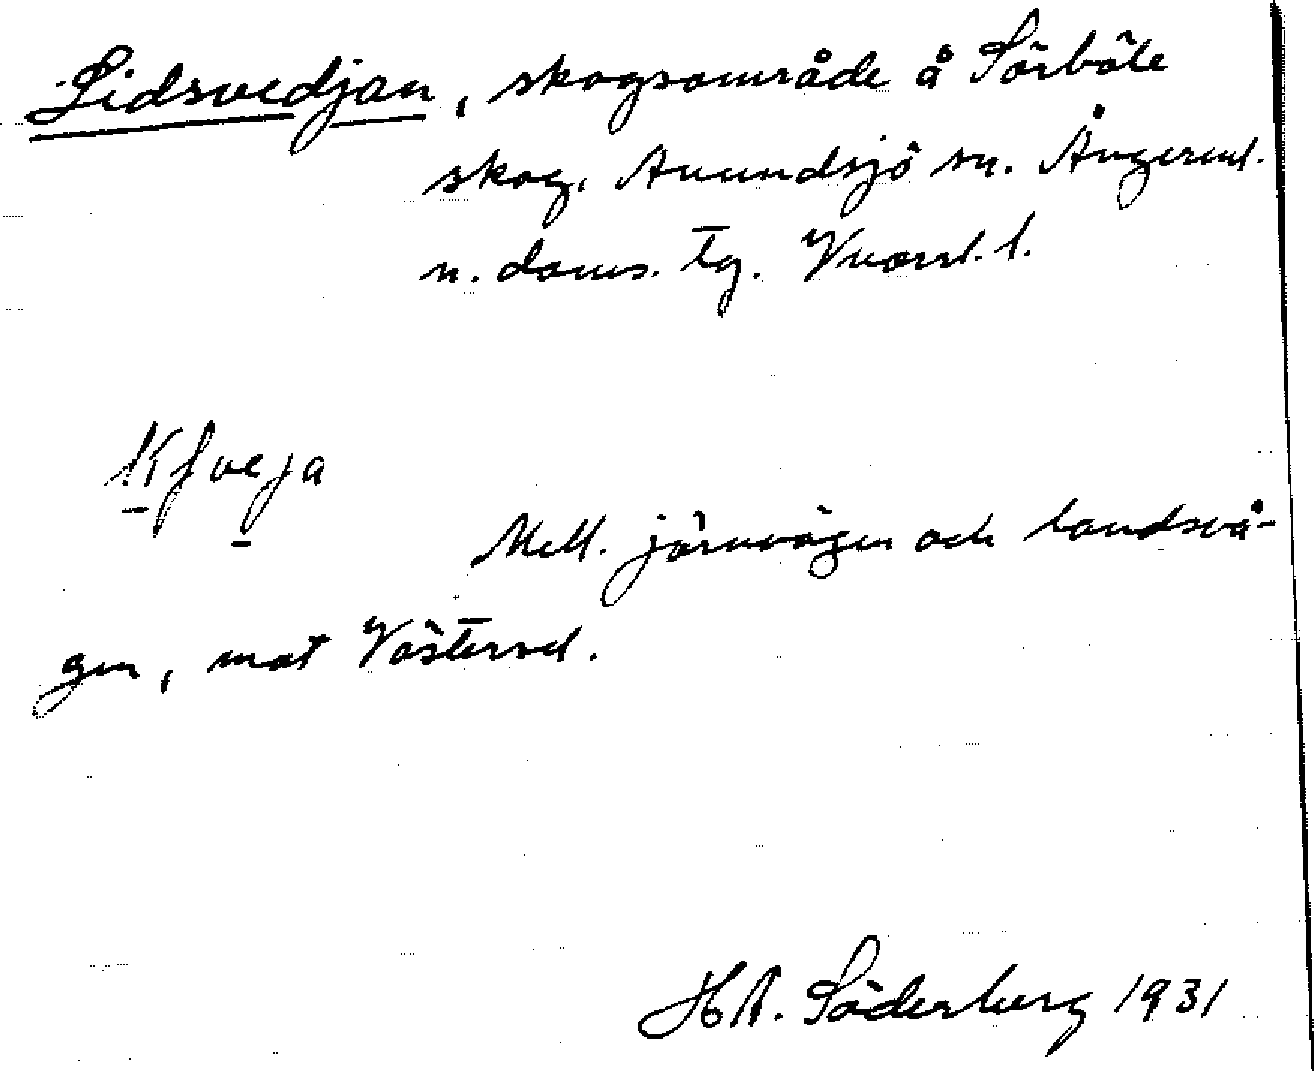 Lidsvedjan, skogsområde å Sörböle
skog, Anundsjö sn. Ångerml.
n. doms. tg. Vnorrl. l.
Mell. järnvägen och landsvä-
gen, mot Västersel.
H A. Söderberg 1931